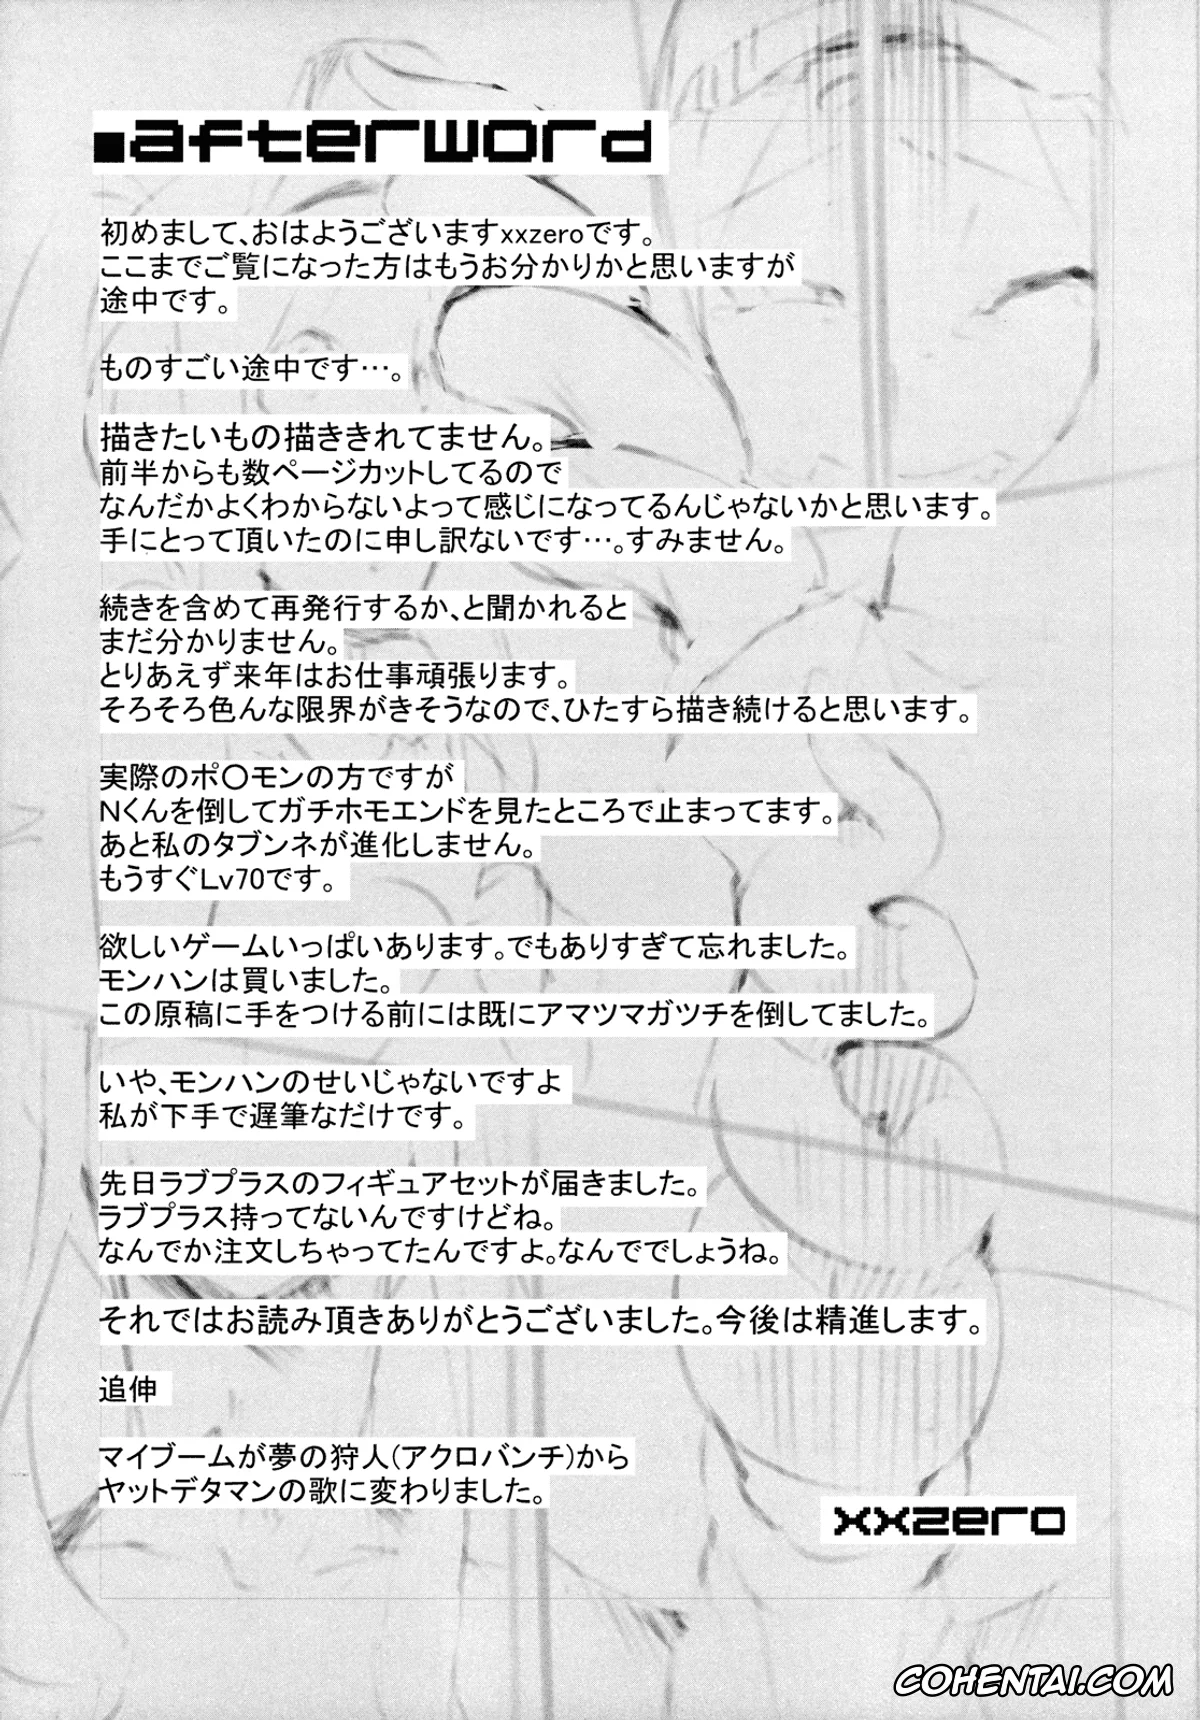 ■afterword
初めまして、おはようございますxxzeroです。
ここまでご覧になった方はもうお分かりかと思いますが
途中です。
ものすごい途中です…。
描きたいもの描ききれてません。
前半からも数ページカットしてるので
なんだかよくわからないよって感じになってるんじゃないかと思います。
手にとって頂いたのに申し訳ないです…。すみません。
続きを含めて再発行するか、と聞かれると
まだ分かりません。
とりあえず来年はお仕事頑張ります。
そろそろ色んな限界がきそうなので、ひたすら描き続けると思います。
実際のポ〇モンの方ですが
Nくんを倒してガチホモエンドを見たところで止まってます。
あと私のタブンネが進化しません。
もうすぐLv70です。
欲しいゲームいっぱいあります。でもありすぎて忘れました。
モンハンは買いました。
この原稿に手をつける前には既にアマツマガツチを倒してました。
いや、モンハンのせいじゃないですよ
私が下手で遅筆なだけです。
先日ラブプラスのフィギュアセットが届きました。
ラブプラス持ってないんですけどね。
なんでか注文しちゃってたんですよ。なんででしょうね。
それではお読み頂きありがとうございました。今後は精進します。
追伸
マイブームが夢の狩人(アクロバンチ)から
ヤットデタマンの歌に変わりました。
xxzero
COHENTAI.COM